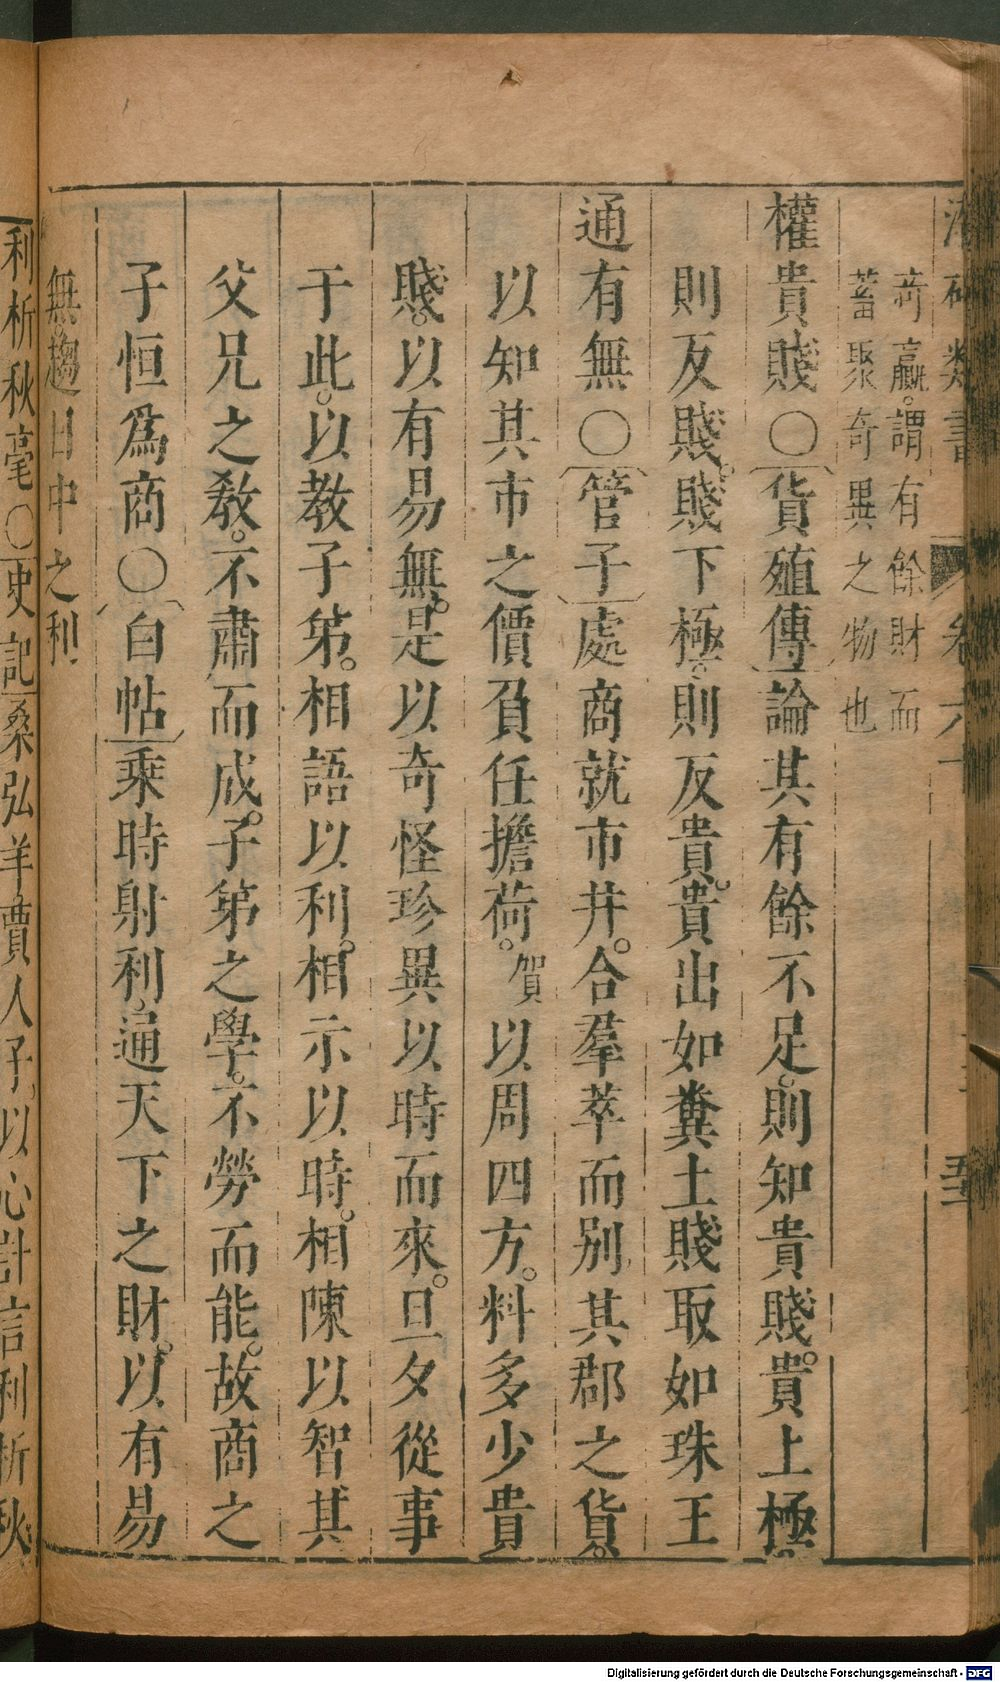 潛確類書 卷六十
荷嬴。謂有餘財而
蓄聚奇異之物也
權貴賤〇貨殖傳論其有餘不足。則知貴賤。貴上極。
則反賤。賤下極。則反貴。貴出如糞土賤取如珠王
通有無〇管子處商就市井。合羣萃而別其郡之貨。
以知其市之價負任擔荷。賀以周四方。料多少貴
賤。以有易無。是以奇怪珍異以時而來。旦夕從事
于此。以教子第。相語以利。相示以時。相陳以智其
父兄之教。不肅而成。子第之學。不勞而能。故商之
子恒爲商〇白帖乘時射利。通天下之財。以有易
無。趨日中之利
利析秋毫〇史記桑弘羊賈人子。以心計言利析秋
Digitalisierung gefördert durch die Deutsche Forschungsgemeinschaft - DFG